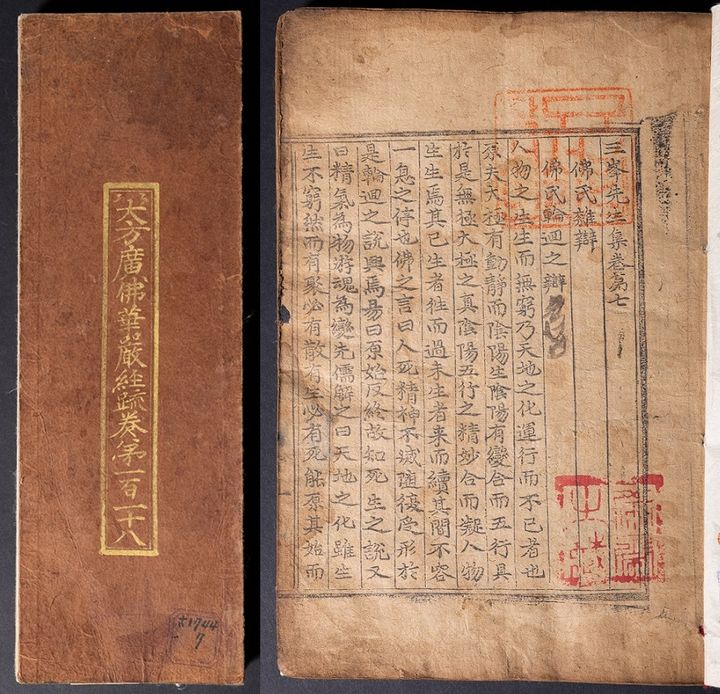 大方廣佛華嚴經䟽卷第一百一十八
古1744
7
三峯先生集卷第七
佛氏雜辯
佛氏輪迴之辯
人物之生生而無窮乃天地之化運行而不已者也
原夫太極有動靜而陰陽生陰陽有變合而五行具
於是無極太極之真陰陽五行之精妙合而凝人物
生生焉其已生者徃而過未生者来而續其間不容
一息之停也佛之言曰人死精神不滅隨復受形於
是輪迴之說興焉易曰原始反終故知死生之說又
曰精氣為物游魂為變先儒解之曰天地之化雖生
生不窮然而有聚必有散有生必有死能原其始而